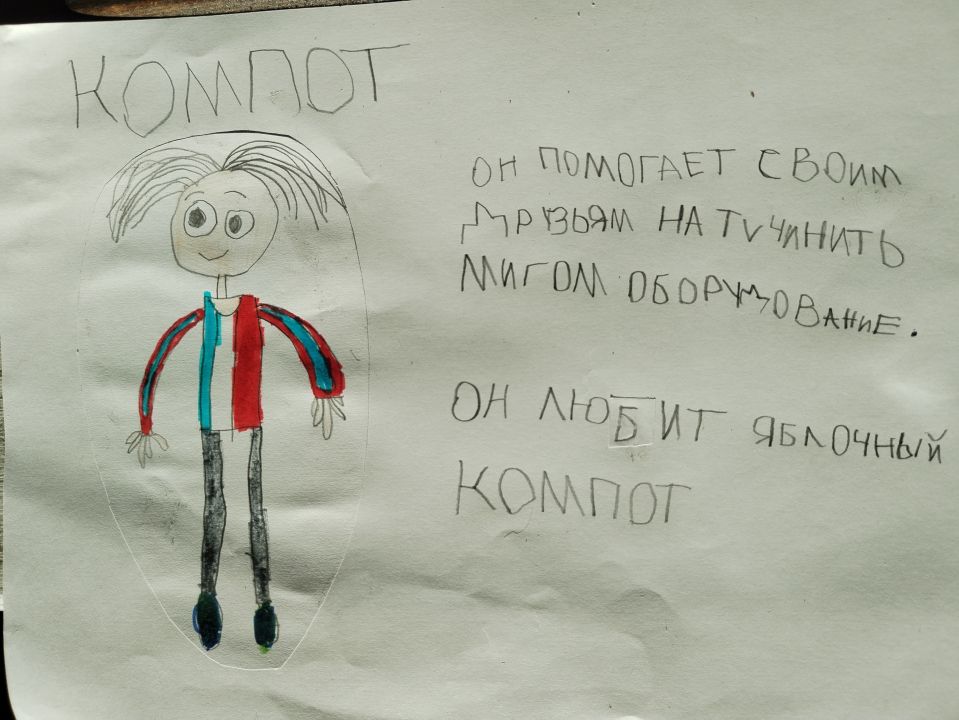 КОМПОТ
ОН ПОМОГАЕТ СВОИМ
ДРУЗЬЯМ НА TV ЧИНИТЬ
МИГОМ ОБОРУДОВАНИЕ.
ОН ЛЮБИТ ЯБЛОЧНЫЙ
КОМПОТ